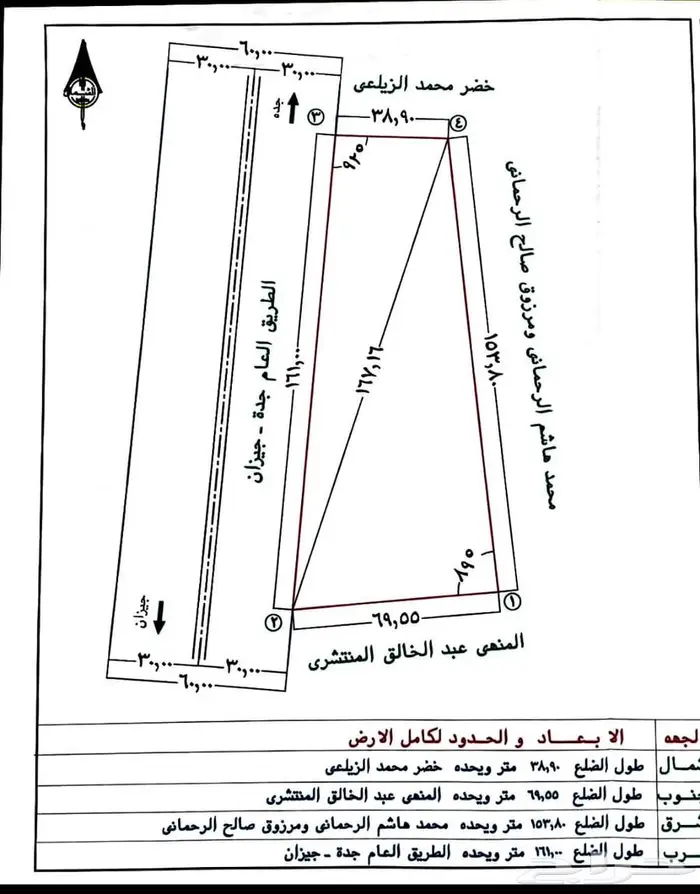 ٦٠,٠٠
٣٠,٠٠ ٣٠,٠٠
جده
خضر محمد الزيلعى
٣٨,٩٠
٣
٤
٩٢٥
محمد هاشم الرحمانى ومرزوق صالح الرحمانى
الطريق العام جدة - جيزان
١٦١,٠٠
١٦٧,١٦
١٥٣,٨٠
٨٩٥
جيزان
١
٢
٦٩,٥٥
المنهى عبد الخالق المنتشرى
٣٠,٠٠ ٣٠,٠٠
٦٠,٠٠
لجهه الابعاد و الحدود لكامل الارض
شمال طول الضلع ٣٨,٩٠ متر ويحده خضر محمد الزيلعى
نوب طول الضلع ٦٩,٥٥ متر ويحده المنهى عبد الخالق المنتشرى
شرق طول الضلع ١٥٣,٨٠ متر ويحده محمد هاشم الرحمانى ومرزوق صالح الرحمانى
رب طول الضلع ١٦١,٠٠ متر ويحده الطريق العام جدة - جيزان
حراج